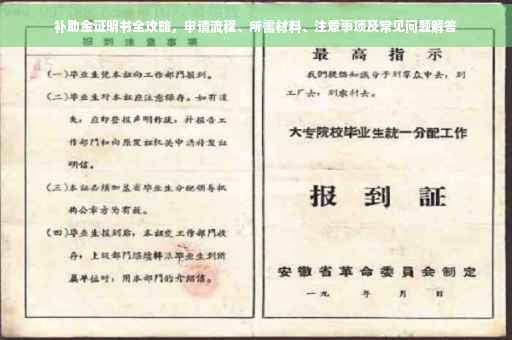 补助金证明书全攻略，申请流程、所需材料、注意事项及常见问题解答
报到注意事项
(一)毕业生凭本证向工作部门报到。
(二)毕业生对本证应注意保存。如有遗
失，应即登报声明作废，并报告工
作部门和向原发证机关申请补发证
明信。
(三)本证必须加盖省毕业生分配领导机
构公章方为有效。
(四)毕业生报到后，本证交工作部门收
存；上级部门继续转派毕业生到所
属单位时，用本部门的介绍信。
最高指示
我们提倡知识分子到群众中去，到
工厂去，到农村去。
大专院校毕业生統一分配工作
报到証
安徽省革命委員会制定
一九 年 月 日